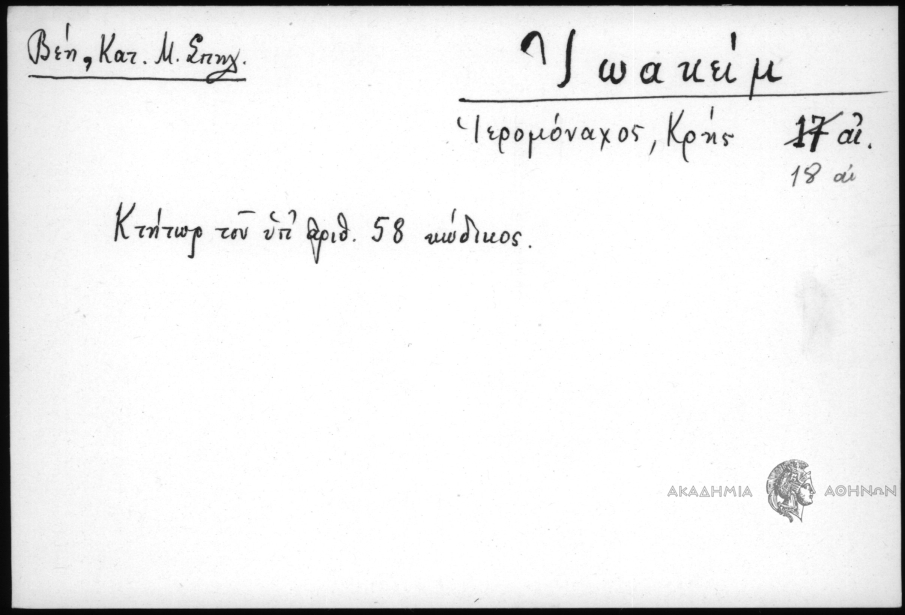 Βέη, Κατ. Μ. Σπηλ.
Ἰωακείμ
Ἱερομόναχος, Κρής 17 αἰ.
18 αἰ
Κτήτωρ τοῦ ὑπ' ἀριθ. 58 κώδικος.
ΑΚΑΔΗΜΙΑ ΑΘΗΝΩΝ